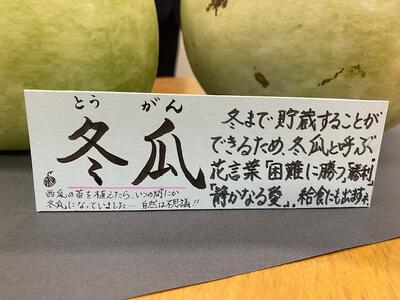 とう がん
冬瓜
西瓜の苗を植えたら、いつの間にか
冬瓜になっていました… 自然は不思議!!
冬まで貯蔵することが
できるため、冬瓜と呼ぶ。
花言葉「困難に勝つ」「勝利」
「静かなる愛」。給食にも出ますよ。